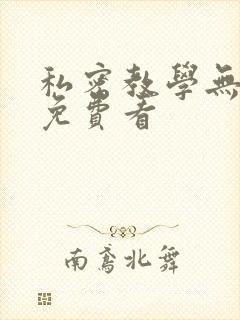 私密教學無
免費看
南鳶北舞